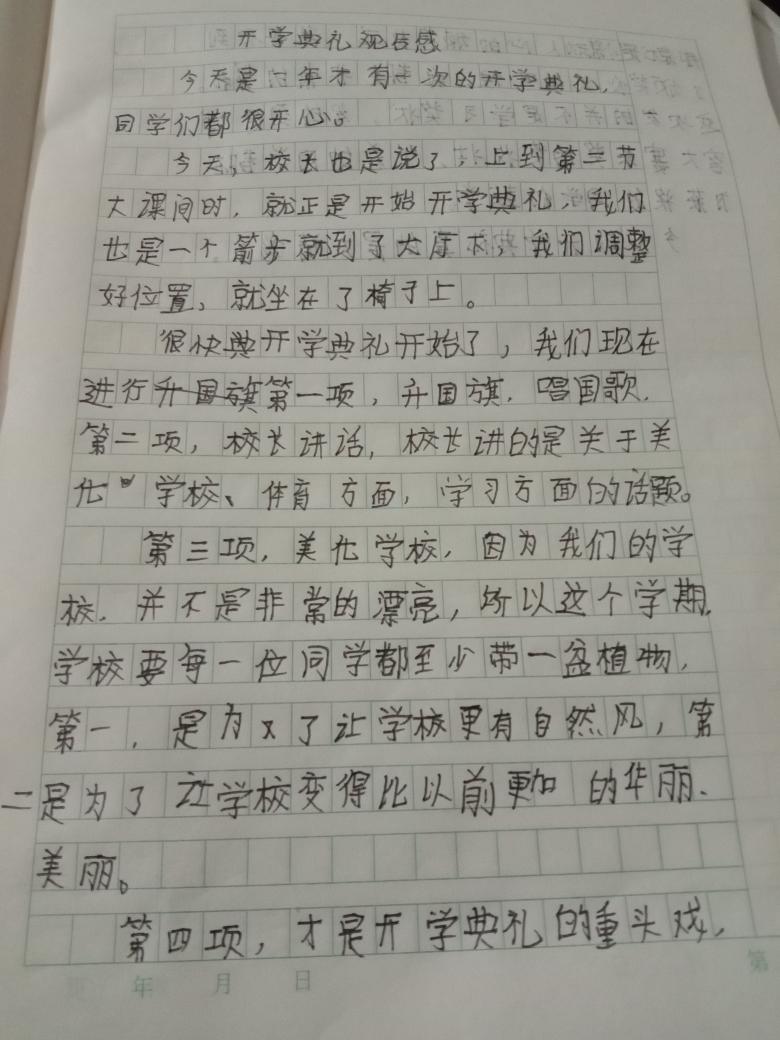 开学典礼观后感
今天是六年才有一次的开学典礼,
同学们都很开心。
今天,校长也是说了,上到第二节
大课间时,就正是开始开学典礼,我们
也是一个箭步就到了大厅,我们调整
好位置,就坐在了椅子上。
很快典开学典礼开始了,我们现在
进行升国旗第一项,升国旗.唱国歌.
第二项,校长讲话,校长讲的是关于美
化学校、体育方面,学习方面的话题。
第三项,美化学校,因为我们的学
校.并不是非常的漂亮,所以这个学期,
学校要每一位同学都至少带一盆植物,
第一,是为了让学校更有自然风,第
二是为了让学校变得比以前更加的华丽.
美丽。
第四项,才是开学典礼的重头戏,
年 月 日
第